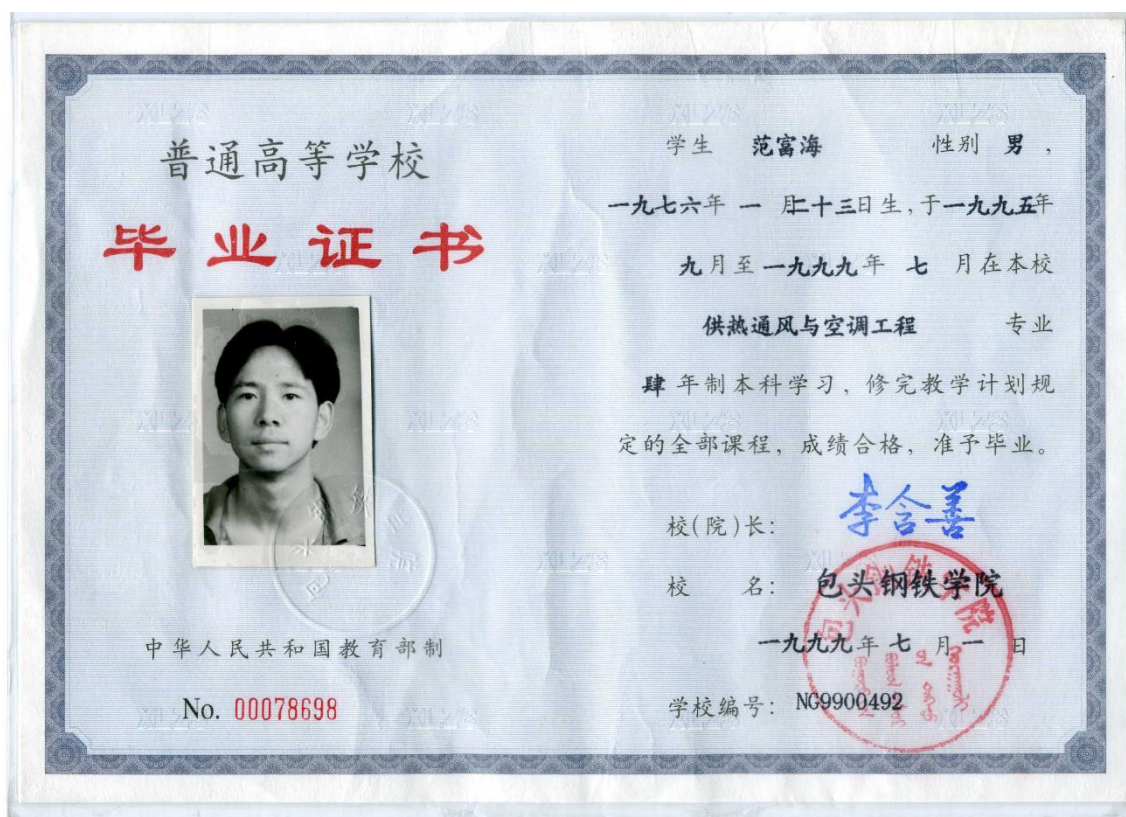 普通高等学校
毕业证书
中华人民共和国教育部制
No. 00078698
学生 范富海 性别 男,
一九七六年 一 月二十三日生,于一九九五年
九月至一九九九年 七 月在本校
供热通风与空调工程 专业
肆 年制本科学习, 修完教学计划规
定的全部课程, 成绩合格, 准予毕业。
校(院)长: 李含善
校 名: 包头钢铁学院
一九九九年 七 月 一 日
学校编号: NG9900492
包头钢铁学院